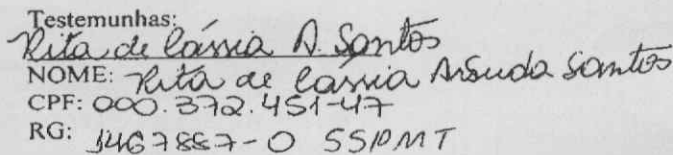 Testemunhas:
Rita de Cássia A. Santos
NOME: Rita de Cassia Arruda Santos
CPF: 000.372.451-47
RG: 1467887-0 SSPMT